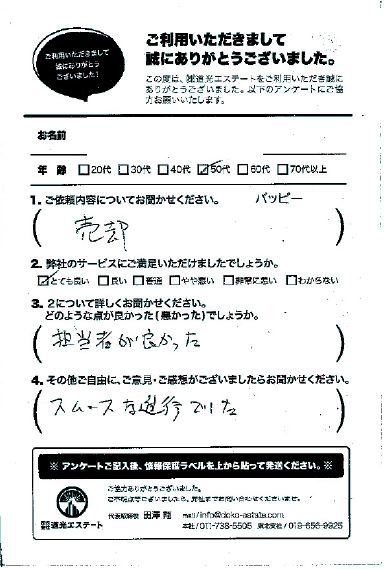 ご利用いただきまして
誠にありがとう
ございました！
ご利用いただきまして
誠にありがとうございました。
この度は、㈱道光エステートをご利用いただき誠に
ありがとうございました。以下のアンケートにご協
力お願いいたします。
お名前
年 齢 □20代 □30代 □40代 ☑50代 □60代 □70代以上
1. ご依頼内容についてお聞かせください。 パッピー
売却
2. 弊社のサービスにご満足いただけましたでしょうか。
☑とても良い □良い □普通 □やや悪い □非常に悪い □わからない
3. 2について詳しくお聞かせください。
どのような点が良かった(悪かった)でしょうか。
担当者が良かった
4. その他ご自由に、ご意見・ご感想がございましたらお聞かせください。
スムースな進行でした
※ アンケートご記入後、情報保護ラベルを上から貼って発送ください。※
ご協力ありがとうございました。
ご不明点等ございましたら、弊社までお問い合わせくださいませ。
道光エステート
代表取締役 田澤 翔 mail/info@doko-estate.com
本社/011-738-5505 東北支社/019-656-9925